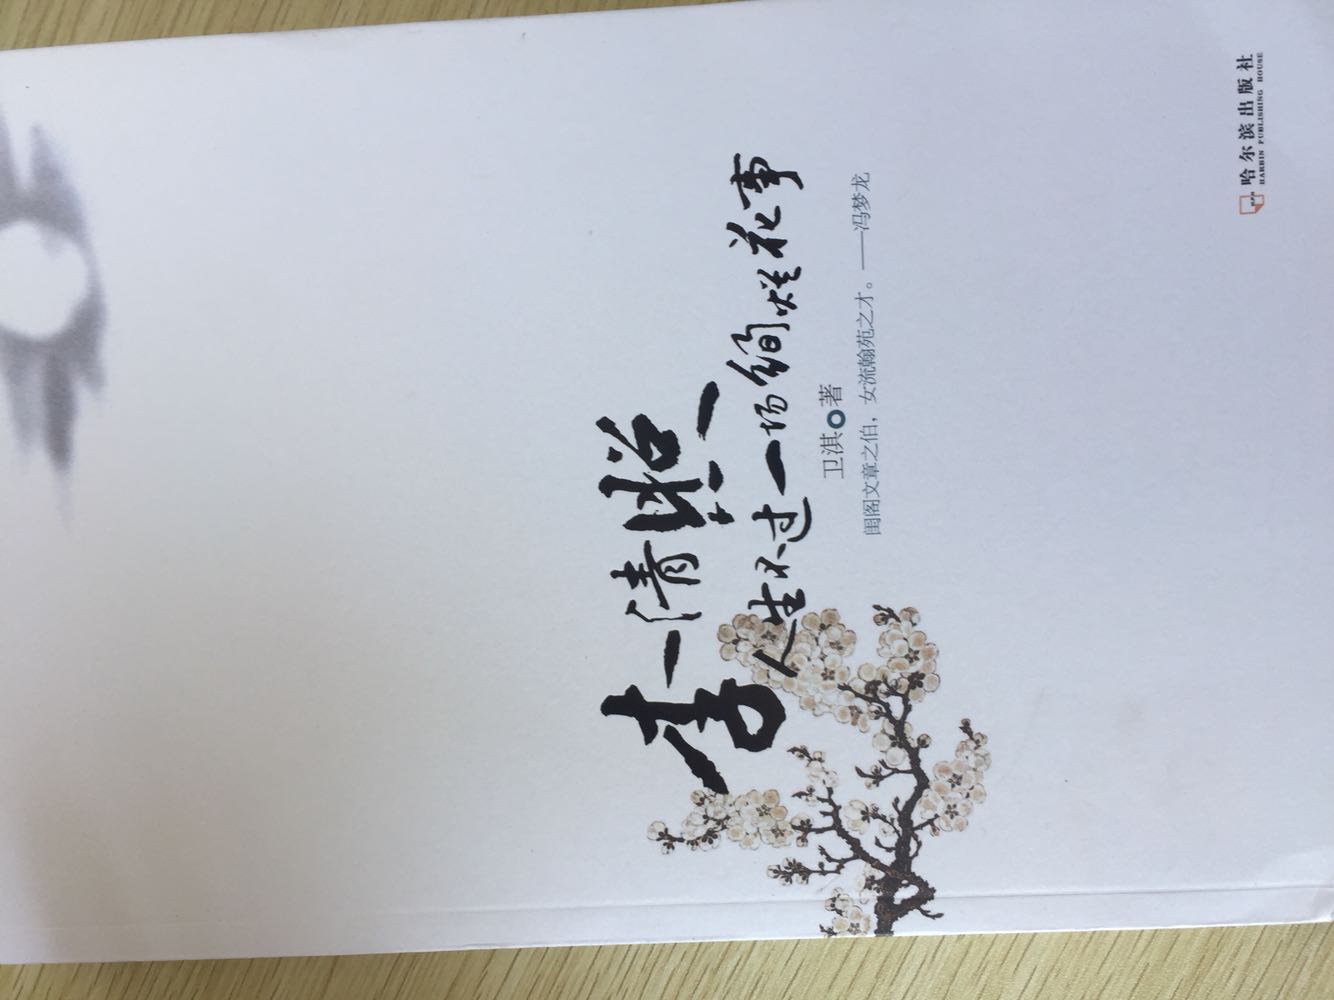 李清照
人生不过一场绚烂花事
卫淇 著
闺阁文章之伯，女流翰苑之才。——冯梦龙
哈尔滨出版社
HARBIN PUBLISHING HOUSE